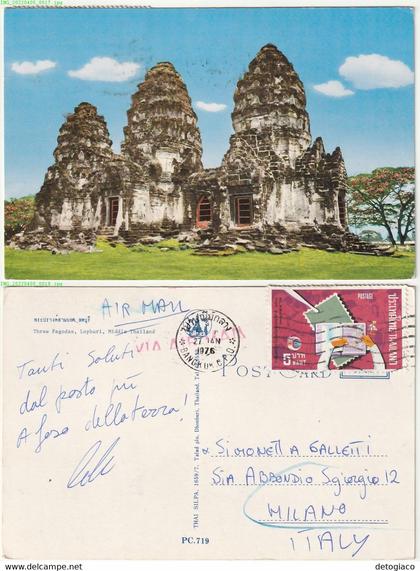 IMG_20220405_0017.jpg
IMG_20220405_0018.jpg
พระปรางค์สามยอด, ลพบุรี
Three Pagodas, Lopburi, Middle Thailand
AIR MAIL
VIA A
Tanti Saluti
dal posto più
della terra!
BANGKOK G.P.O.
27 JAN
1976
POSTAGE
ประเทศไทย THAILAND
5 บาท
BAHT
POST CARD
THAI SILPA, 1459/7,
PC.719
SIMONETTA GALLETTI
VIA ABBONDIO SGIORGIO 12
MILANO
ITALY
©2022 delcampe.net
detogiaco